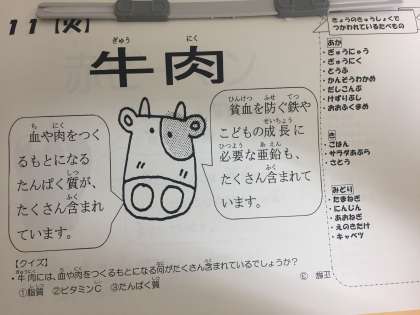 11【火】
ぎゅう にく
牛肉
血や肉をつく
るもとになる
たんぱく質が、
たくさん含まれ
ています。
貧血を防ぐ鉄や
こどもの成長に
必要な亜鉛も、
たくさん含まれて
います。
【クイズ】
・牛肉には、血や肉をつくるもとになる何がたくさん含まれているでしょうか？
①脂質 ②ビタミンC ③たんぱく質
きょうのきゅうしょくで
つかわれているたべもの
あか
・ぎゅうにゅう
・ぎゅうにく
・とうふ
・かんそうわかめ
・だしこんぶ
・けずりぶし
・おおふくまめ
き
・ごはん
・サラダあぶら
・さとう
みどり
・たまねぎ
・にんじん
・あおねぎ
・えのきたけ
・キャベツ